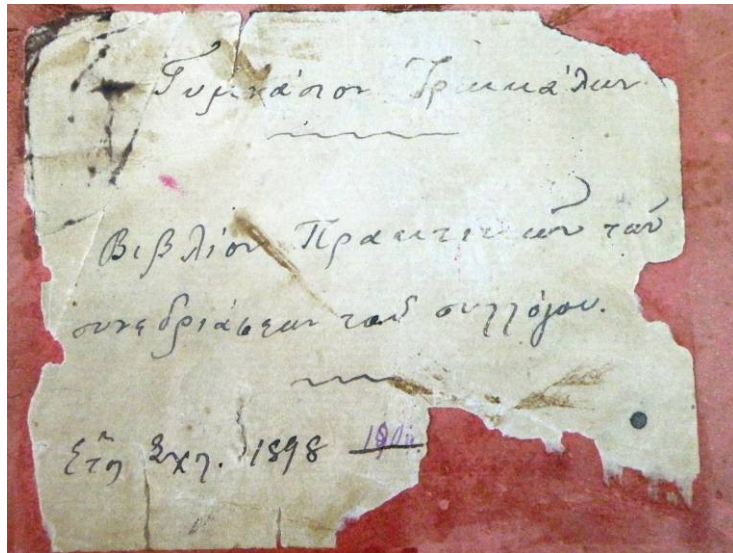 Γυμνάσιον Τρικκάλων
Βιβλίον Πρακτικῶν τῶν
συνεδριάσεων τοῦ συλλόγου.
Ἔτη Σχολ. 1898